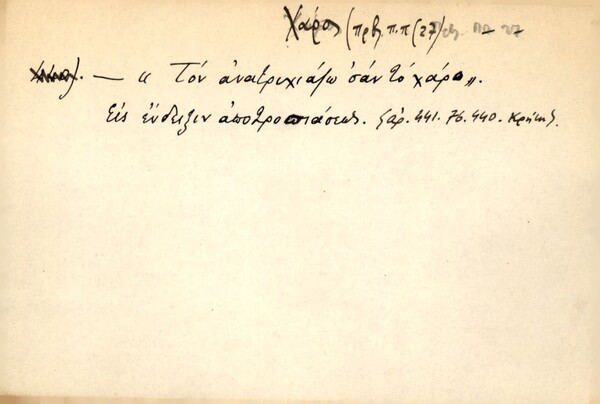 Χάρος (πρβ. π.π (27)
— « Τὸν ἀνατριχιάζω σὰν τὸ χάρο ».
Εἰς ἔνδειξιν ἀποτροπιάσεως. (ἀρ. 441. 76. 440. Κρήτης).